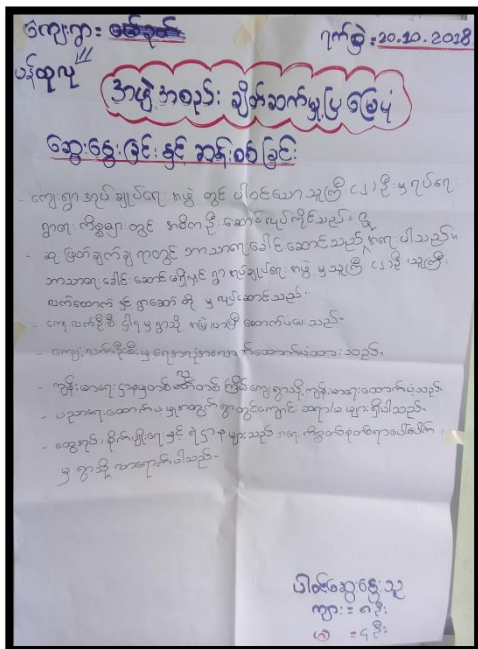 ကျေးရွား
ရက်စွဲ း 20.10.2018
ပန်ထုလု
အဖွဲ့အစည်း ချိတ်ဆက်မှုပြ မြေပုံ
ဆွေးနွေးခြင်း နှင့် ဆန်းစစ်ခြင်း
- ကျေးရွာအုပ်ချုပ်ရေး အဖွဲ့ တွင် ပါဝင်သော သူကြီး (၂) ဦး မှ ရပ်ရေး
ရွာရေး ကိစ္စများ တွင် အဓိက ဦးဆောင်လုပ်ကိုင်သည်။
- ဆုံးဖြတ်ချက်ချရာတွင် ဘာသာရေးခေါင်းဆောင်သည် အရေးပါသည်။
ဘာသာရေးခေါင်းဆောင် မရှိလျှင် ရွာအုပ်ချုပ်ရေး အဖွဲ့ မှ သူကြီး (၂) ဦး သူကြီး
လက်ထောက် နှင့် ရွာဆော် တို့ မှ လုပ်ဆောင်သည်။
- ကျေးလက်ဦးစီးဌာန မှ ရွာသို့ လာပြီး ထောက်ပံ့ပေးသည်။
- ကျေးလက်ဦးစီး မှ ထောက်ပံ့ထားသည်။
- ကျန်းမာရေးဌာနမှ တစ်တစ်ကြိမ် ကျေးရွာသို့ ကျန်းမာရေးထောက်ပံ့သည်။
- ပညာရေးထောက်ပံ့မှုအတွက် ရွာတွင်ကျောင်း ဆရာ/မ များ ရှိပါသည်။
- ထွေအုပ်၊ စိုက်ပျိုးရေး နှင့် ရဲဌာန များသည် အရေးကိစ္စတစ်စုံတစ်ရာပေါ်ပေါက်
မှ ရွာသို့ လာရောက်ပါသည်။
ပါဝင်ဆွေးနွေးသူ
ကျား = ၈ ဦး
(မ) = ၄ ဦး